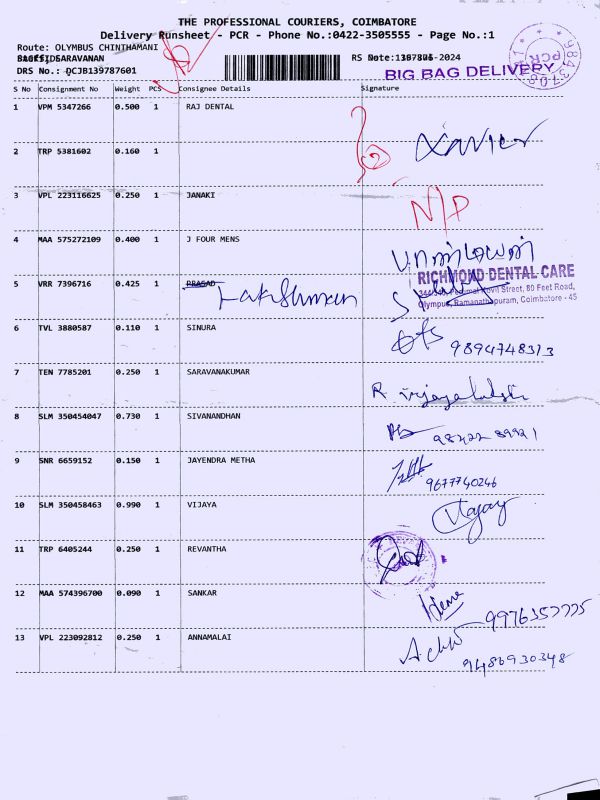 THE PROFESSIONAL COURIERS, COIMBATORE
Delivery Runsheet - PCR - Phone No.:0422-3505555 - Page No.:1
Route: OLYMPUS CHINTHAMANI
SARAVANAN
DRS No.: QCJB139787601
RS Note:
-2024
BIG BAG DELIVERY
PCR
S No Consignment No Weight PCS Consignee Details Signature
1 VPM 5347266 0.500 1 RAJ DENTAL
2 TRP 5381602 0.160 1 Xavier
3 VPL 223116625 0.250 1 JANAKI N/P
4 MAA 575272109 0.400 1 J FOUR MENS
RICHMOND DENTAL CARE
Street, 80 Feet Road,
Olympus, Ramanathapuram, Coimbatore - 45
5 VRR 7396716 0.425 1 PRASAD Lakshmanan
6 TVL 3880587 0.110 1 SINURA 9894748313
7 TEN 7785201 0.250 1 SARAVANAKUMAR R. Vijayalakshmi
8 SLM 350454047 0.730 1 SIVANANDHAN 98422 89921
9 SNR 6659152 0.150 1 JAYENDRA METHA 9677740246
10 SLM 350458463 0.990 1 VIJAYA Vijay
11 TRP 6405244 0.250 1 REVANTHA
12 MAA 574396700 0.090 1 SANKAR 9976357775
13 VPL 223092812 0.250 1 ANNAMALAI 9486930348